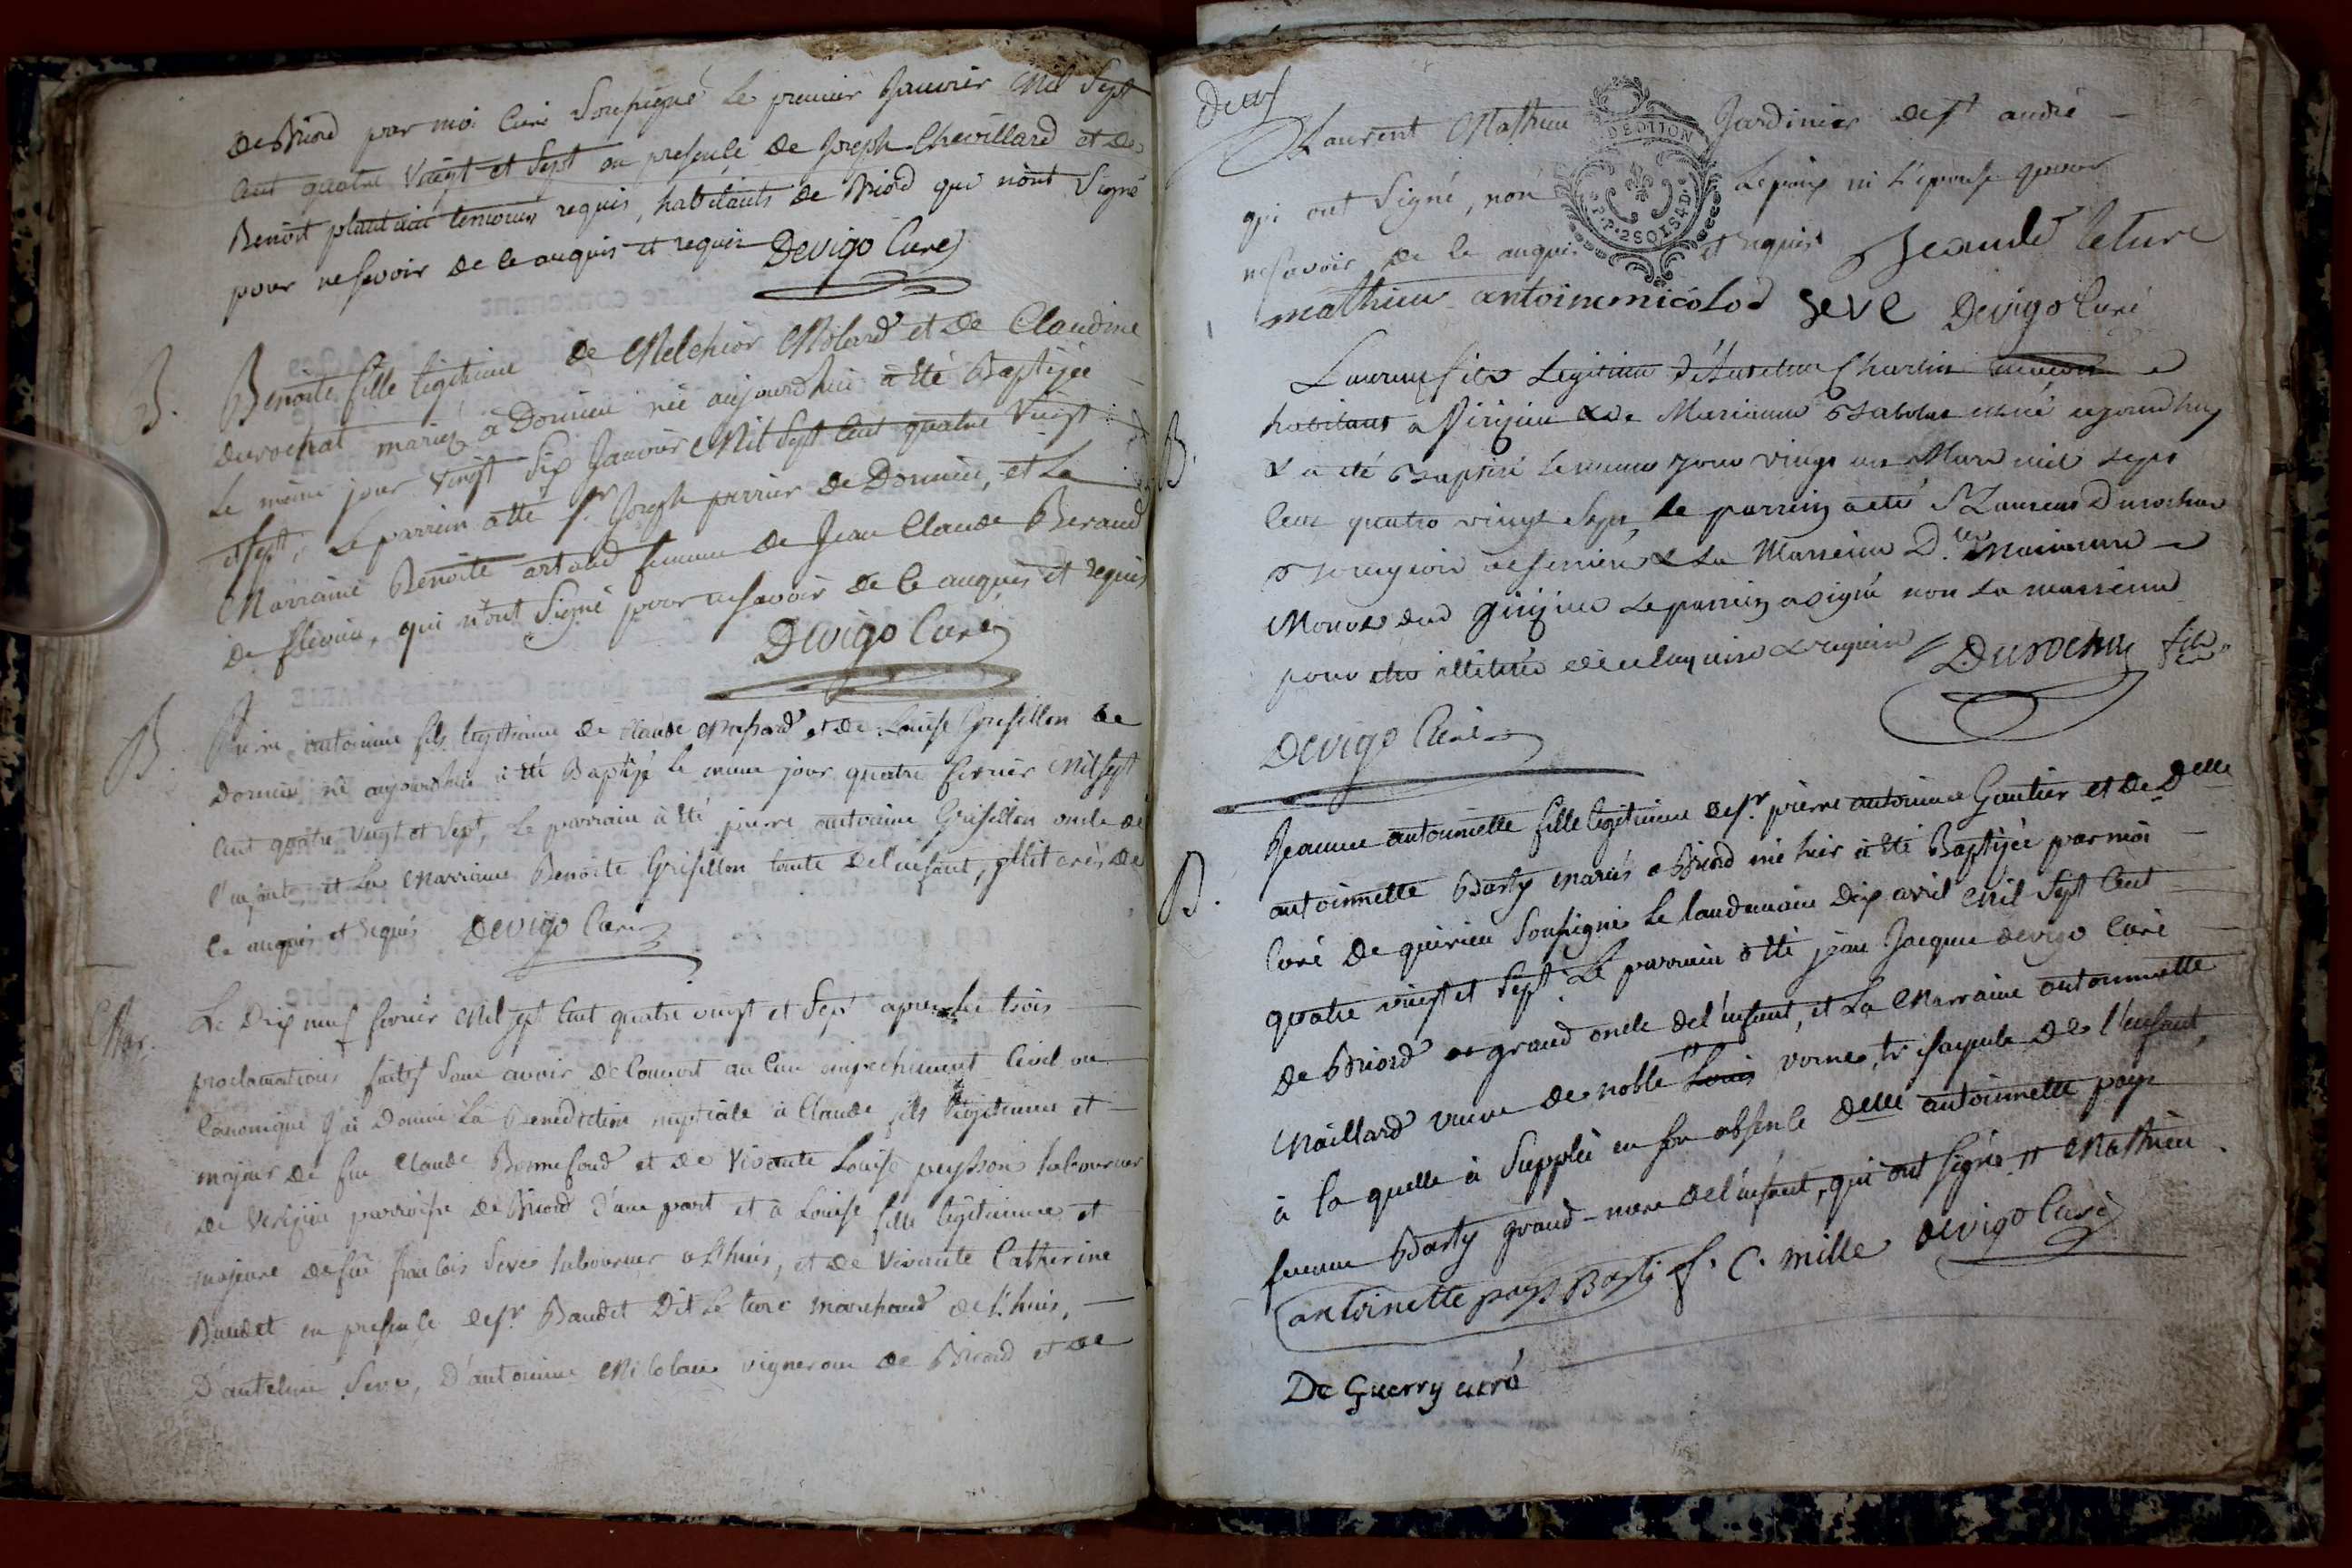 de Briord par moi Curé soussigné le premier Janvier Mil Sept
Cent quatre vingt et Sept en presence de Joseph Chevillard et de
Benoit plantain temoins requis, habitants de Briord qui n'ont Signé
pour ne savoir de ce enquis et requis Devigo Curé
B.
Benoite fille legitime de Melchior Molard et de Claudine
durochat mariés à Dornieu née aujourdhui à été Baptisée
Le même jour vingt Six Janvier Mil Sept Cent quatre Vingt
et sept, Le parrain a été Sr. Joseph perrier de Dornieu, et La
Marraine Benoite artaud femme de Jean Claude Beraud
de, qui n'ont Signé pour ne savoir de ce enquis et requis
Devigo Curé
B.
Pierre antoinne fils legitime de Claude et de Louise Grisillon de
Dornieu né aujourdhui à été Baptisé le meme jour quatre fevrier Mil sept
Cent quatre vingt et Sept, Le parrain à été pierre antoinne Grisillon oncle de
l'enfant et La Marraine Benoite Grisillon tante de l'enfant, illiterés de
ce enquis et requis Devigo Curé
Mar.
Le Dix neuf fevrier Mil sept Cent quatre vingt et Sept apres les trois
proclamations faites sans avoir decouvert aucun empechement Civil ou
Canonique j'ai Donné La Benediction nuptiale à Claude fils legitime et
majeur de feu Claude Bonnefond et de vivante Louise peysson laboureur
de Verisieu parroisse de Briord d'une part et à Louise fille legitime et
majeure de feu francois Seve laboureur à Lhuis, et de vivante Catherine
Baudet en presence de Sr. Baudet Dit Le turc marchand de Lhuis,
D'antelme Seve, D'antoinne Nicolau vigneron de Briord et de
Deux
Laurent Mathieu Jardinier de St andré
DEDITION
2SOLS4D
qui ont Signé, non Lepoux ni L'epouse pour
ne savoir de ce enquis et requis Baudet leturc
mathieu antoine nicolod Seve Devigo Curé
B.
Laurent fils Legitime d'Anthelme Charlin
habitant a Virizieu & de Marianne est né aujourdhuy
& a été Baptisé le meme jour vingt un Mars mil sept
Cent quatre vingt Sept, le parrein a été Sr. Laurent Durochat
& La Marreine Dlle. Marianne
Le parrein a signé non la marreine
pour etre illiterée de ce enquise & requise Durochat fils
Devigo Curé
B.
Jeanne antoinnette fille legitime de Sr. pierre antoinne Gautier et de Delle
antoinnette Barty mariés a Briord née hier à été Baptisée par moi
Curé de quirieu Soussigné Le landemain Dix avril Mil Sept Cent
quatre vingt et Sept. Le parrain à été jean Jacques devigo Curé
de Briord grand oncle de l'enfant, et La Marraine antoinnette
Maillard veuve de noble Louis vorne, trisayeule de l'enfant,
à la quelle à Suppléé en son absence Delle antoinnette pays
femme Barty grand-mere de l'enfant, qui ont signé Mathieu
antoinette pays Barti f. C. mille devigo Curé
De Guerry curé